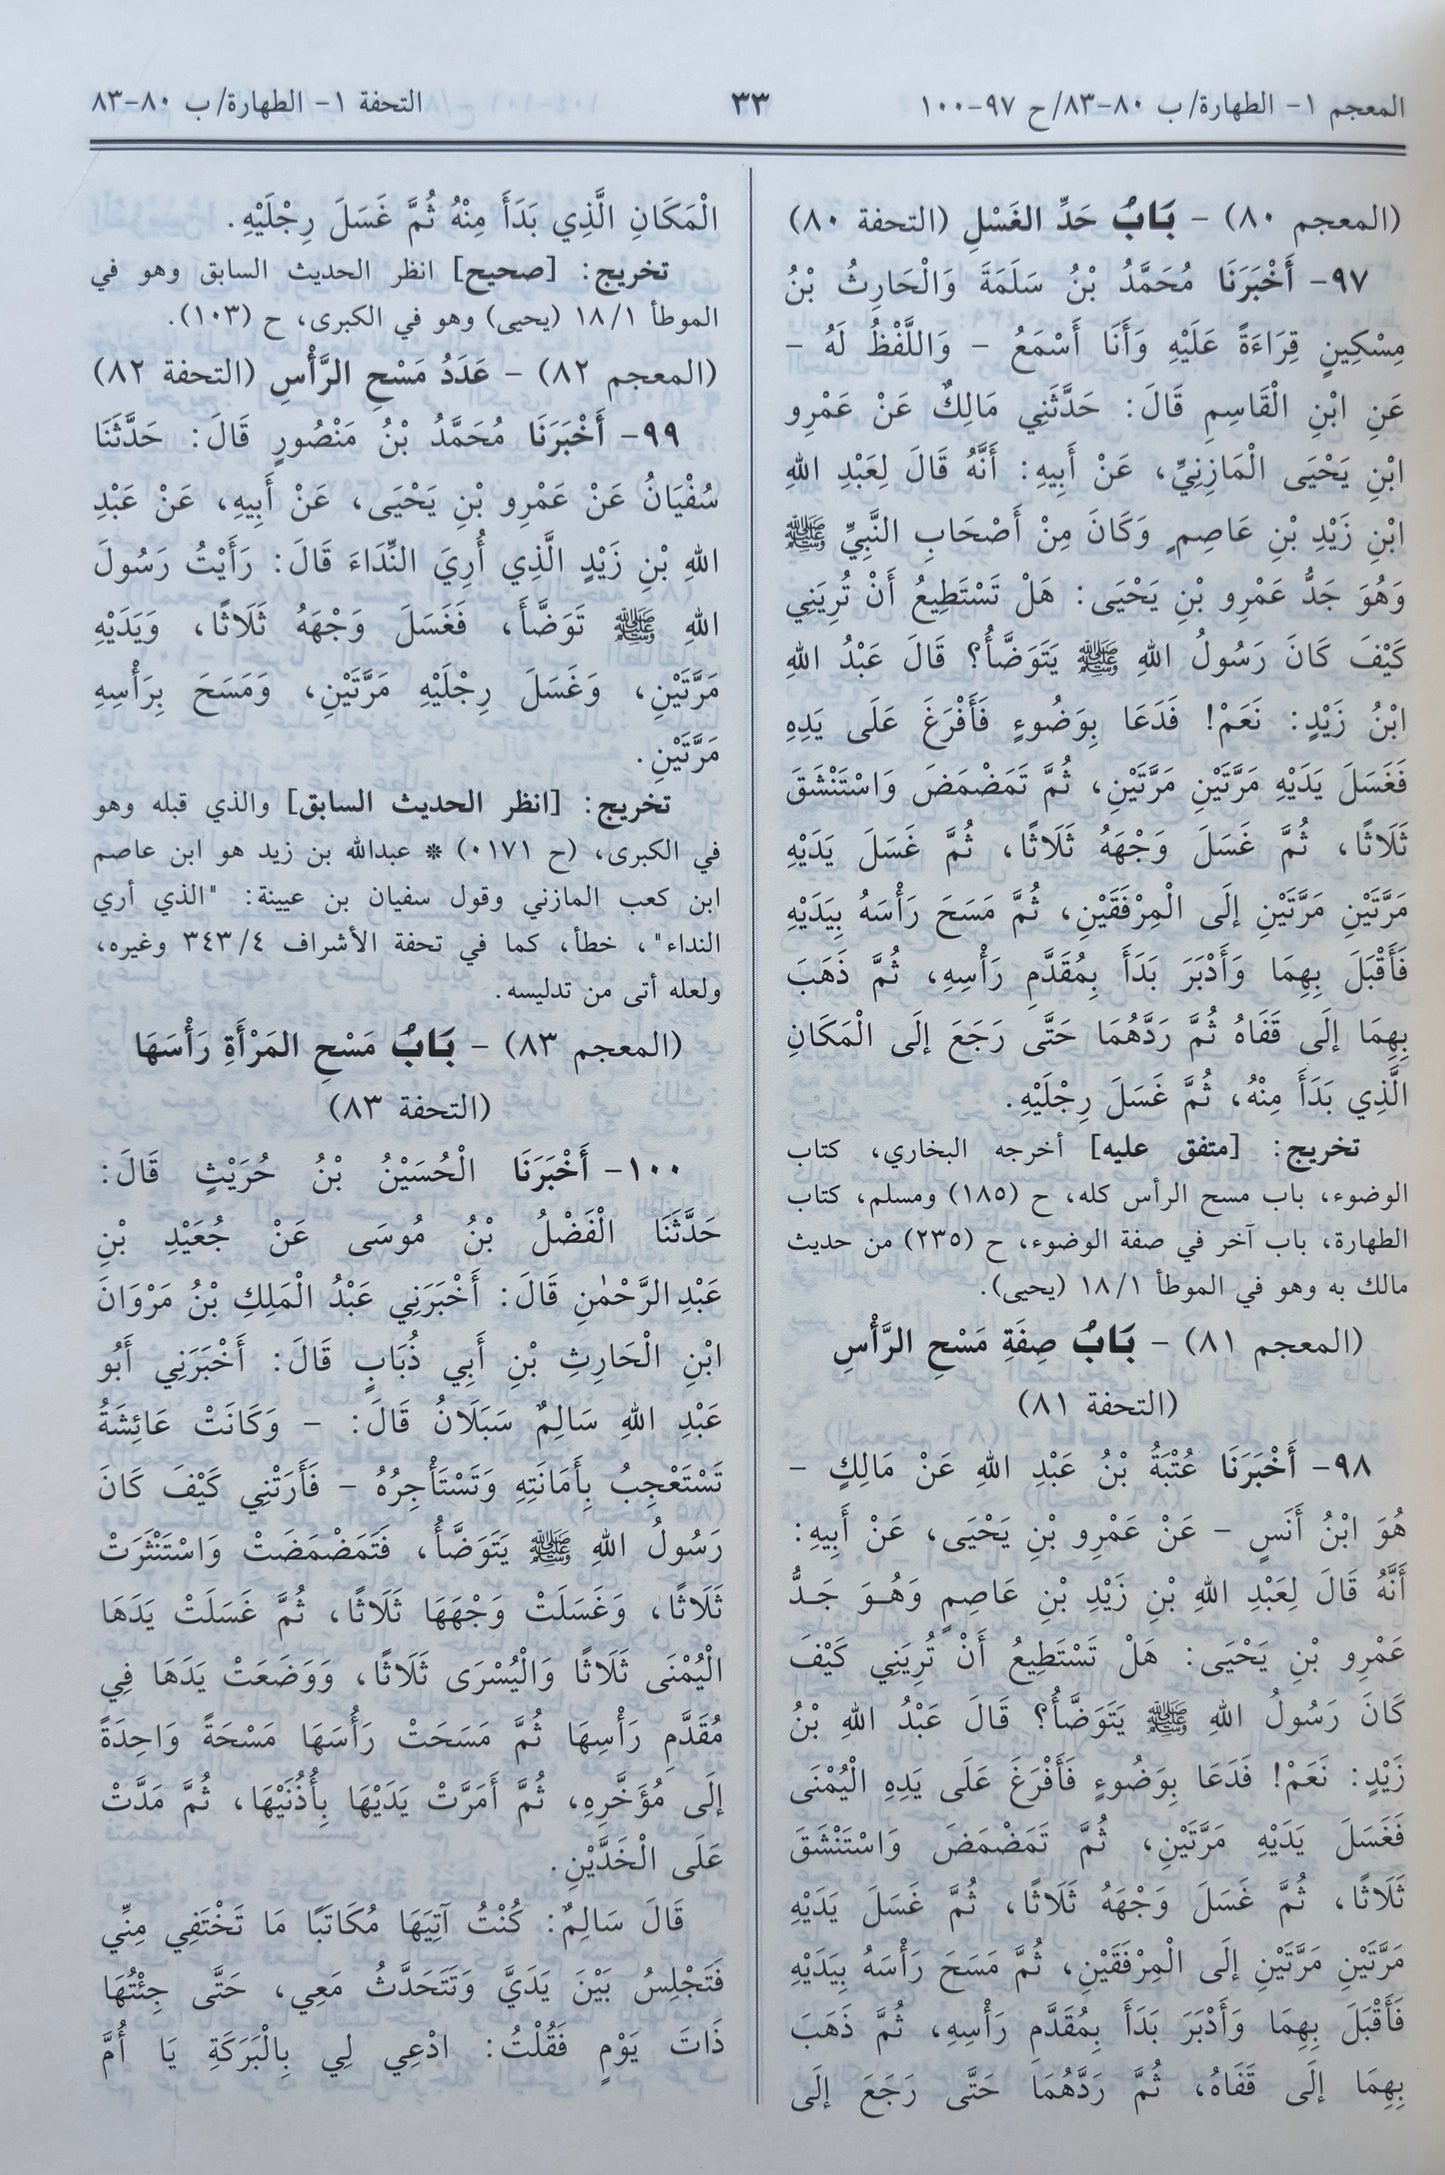 المعجم ١- الطهارة/ ب ٨٠-٨٣/ ح ٩٧-١٠٠
٣٣
التحفة ١- الطهارة/ ب ٨٠-٨٣
(المعجم ٨٠) - بَابُ حَدِّ الغَسْلِ (التحفة ٨٠)
٩٧- أَخْبَرَنَا مُحَمَّدُ بْنُ سَلَمَةَ وَالْحَارِثُ بْنُ
مِسْكِينٍ قِرَاءَةً عَلَيْهِ وَأَنَا أَسْمَعُ - وَاللَّفْظُ لَهُ -
عَنِ ابْنِ الْقَاسِمِ قَالَ: حَدَّثَنِي مَالِكٌ عَنْ عَمْرِو
ابْنِ يَحْيَى الْمَازِنِيِّ، عَنْ أَبِيهِ: أَنَّهُ قَالَ لِعَبْدِ اللهِ
ابْنِ زَيْدِ بْنِ عَاصِمٍ وَكَانَ مِنْ أَصْحَابِ النَّبِيِّ ﷺ
وَهُوَ جَدُّ عَمْرِو بْنِ يَحْيَى: هَلْ تَسْتَطِيعُ أَنْ تُرِيَنِي
كَيْفَ كَانَ رَسُولُ اللهِ ﷺ يَتَوَضَّأُ؟ قَالَ عَبْدُ اللهِ
ابْنُ زَيْدٍ: نَعَمْ! فَدَعَا بِوَضُوءٍ فَأَفْرَغَ عَلَى يَدِهِ
فَغَسَلَ يَدَيْهِ مَرَّتَيْنِ مَرَّتَيْنِ، ثُمَّ تَمَضْمَضَ وَاسْتَنْشَقَ
ثَلَاثًا، ثُمَّ غَسَلَ وَجْهَهُ ثَلَاثًا، ثُمَّ غَسَلَ يَدَيْهِ
مَرَّتَيْنِ مَرَّتَيْنِ إِلَى الْمِرْفَقَيْنِ، ثُمَّ مَسَحَ رَأْسَهُ بِيَدَيْهِ
فَأَقْبَلَ بِهِمَا وَأَدْبَرَ بَدَأَ بِمُقَدَّمِ رَأْسِهِ، ثُمَّ ذَهَبَ
بِهِمَا إِلَى قَفَاهُ ثُمَّ رَدَّهُمَا حَتَّى رَجَعَ إِلَى الْمَكَانِ
الَّذِي بَدَأَ مِنْهُ، ثُمَّ غَسَلَ رِجْلَيْهِ.
تخريج: [متفق عليه] أخرجه البخاري، كتاب
الوضوء، باب مسح الرأس كله، ح (١٨٥) ومسلم، كتاب
الطهارة، باب آخر في صفة الوضوء، ح (٢٣٥) من حديث
مالك به وهو في الموطأ ١٨/١ (يحيى).
(المعجم ٨١) - بَابُ صِفَةِ مَسْحِ الرَّأْسِ
(التحفة ٨١)
٩٨- أَخْبَرَنَا عُتْبَةُ بْنُ عَبْدِ اللهِ عَنْ مَالِكٍ -
هُوَ ابْنُ أَنَسٍ - عَنْ عَمْرِو بْنِ يَحْيَى، عَنْ أَبِيهِ:
أَنَّهُ قَالَ لِعَبْدِ اللهِ بْنِ زَيْدِ بْنِ عَاصِمٍ وَهُوَ جَدُّ
عَمْرِو بْنِ يَحْيَى: هَلْ تَسْتَطِيعُ أَنْ تُرِيَنِي كَيْفَ
كَانَ رَسُولُ اللهِ ﷺ يَتَوَضَّأُ؟ قَالَ عَبْدُ اللهِ بْنُ
زَيْدٍ: نَعَمْ! فَدَعَا بِوَضُوءٍ فَأَفْرَغَ عَلَى يَدِهِ الْيُمْنَى
فَغَسَلَ يَدَيْهِ مَرَّتَيْنِ، ثُمَّ تَمَضْمَضَ وَاسْتَنْشَقَ
ثَلَاثًا، ثُمَّ غَسَلَ وَجْهَهُ ثَلَاثًا، ثُمَّ غَسَلَ يَدَيْهِ
مَرَّتَيْنِ مَرَّتَيْنِ إِلَى الْمِرْفَقَيْنِ، ثُمَّ مَسَحَ رَأْسَهُ بِيَدَيْهِ
فَأَقْبَلَ بِهِمَا وَأَدْبَرَ بَدَأَ بِمُقَدَّمِ رَأْسِهِ، ثُمَّ ذَهَبَ
بِهِمَا إِلَى قَفَاهُ، ثُمَّ رَدَّهُمَا حَتَّى رَجَعَ إِلَى
الْمَكَانِ الَّذِي بَدَأَ مِنْهُ ثُمَّ غَسَلَ رِجْلَيْهِ.
تخريج: [صحيح] انظر الحديث السابق وهو في
الموطأ ١٨/١ (يحيى) وهو في الكبرى، ح (١٠٣).
(المعجم ٨٢) - عَدَدُ مَسْحِ الرَّأْسِ (التحفة ٨٢)
٩٩- أَخْبَرَنَا مُحَمَّدُ بْنُ مَنْصُورٍ قَالَ: حَدَّثَنَا
سُفْيَانُ عَنْ عَمْرِو بْنِ يَحْيَى، عَنْ أَبِيهِ، عَنْ عَبْدِ
اللهِ بْنِ زَيْدٍ الَّذِي أُرِيَ النِّدَاءَ قَالَ: رَأَيْتُ رَسُولَ
اللهِ ﷺ تَوَضَّأَ، فَغَسَلَ وَجْهَهُ ثَلَاثًا، وَيَدَيْهِ
مَرَّتَيْنِ، وَغَسَلَ رِجْلَيْهِ مَرَّتَيْنِ، وَمَسَحَ بِرَأْسِهِ
مَرَّتَيْنِ.
تخريج: [انظر الحديث السابق] والذي قبله وهو
في الكبرى، (ح ١٧١٠) * عبدالله بن زيد هو ابن عاصم
ابن كعب المازني وقول سفيان بن عيينة: "الذي أري
النداء"، خطأ، كما في تحفة الأشراف ٣٤٣/٤ وغيره،
ولعله أتى من تدليسه.
(المعجم ٨٣) - بَابُ مَسْحِ المَرْأَةِ رَأْسَهَا
(التحفة ٨٣)
١٠٠- أَخْبَرَنَا الْحُسَيْنُ بْنُ حُرَيْثٍ قَالَ:
حَدَّثَنَا الْفَضْلُ بْنُ مُوسَى عَنْ جُعَيْدِ بْنِ
عَبْدِ الرَّحْمٰنِ قَالَ: أَخْبَرَنِي عَبْدُ الْمَلِكِ بْنُ مَرْوَانَ
ابْنِ الْحَارِثِ بْنِ أَبِي ذُبَابٍ قَالَ: أَخْبَرَنِي أَبُو
عَبْدِ اللهِ سَالِمٌ سَبَلَانُ قَالَ: - وَكَانَتْ عَائِشَةُ
تَسْتَعْجِبُ بِأَمَانَتِهِ وَتَسْتَأْجِرُهُ - فَأَرَتْنِي كَيْفَ كَانَ
رَسُولُ اللهِ ﷺ يَتَوَضَّأُ، فَتَمَضْمَضَتْ وَاسْتَنْثَرَتْ
ثَلَاثًا، وَغَسَلَتْ وَجْهَهَا ثَلَاثًا، ثُمَّ غَسَلَتْ يَدَهَا
الْيُمْنَى ثَلَاثًا وَالْيُسْرَى ثَلَاثًا، وَوَضَعَتْ يَدَهَا فِي
مُقَدَّمِ رَأْسِهَا ثُمَّ مَسَحَتْ رَأْسَهَا مَسْحَةً وَاحِدَةً
إِلَى مُؤَخَّرِهِ، ثُمَّ أَمَرَّتْ يَدَيْهَا بِأُذُنَيْهَا، ثُمَّ مَدَّتْ
عَلَى الْخَدَّيْنِ.
قَالَ سَالِمٌ: كُنْتُ آتِيَهَا مُكَاتَبًا مَا تَخْتَفِي مِنِّي
فَتَجْلِسُ بَيْنَ يَدَيَّ وَتَتَحَدَّثُ مَعِي، حَتَّى جِئْتُهَا
ذَاتَ يَوْمٍ فَقُلْتُ: ادْعِي لِي بِالْبَرَكَةِ يَا أُمَّ